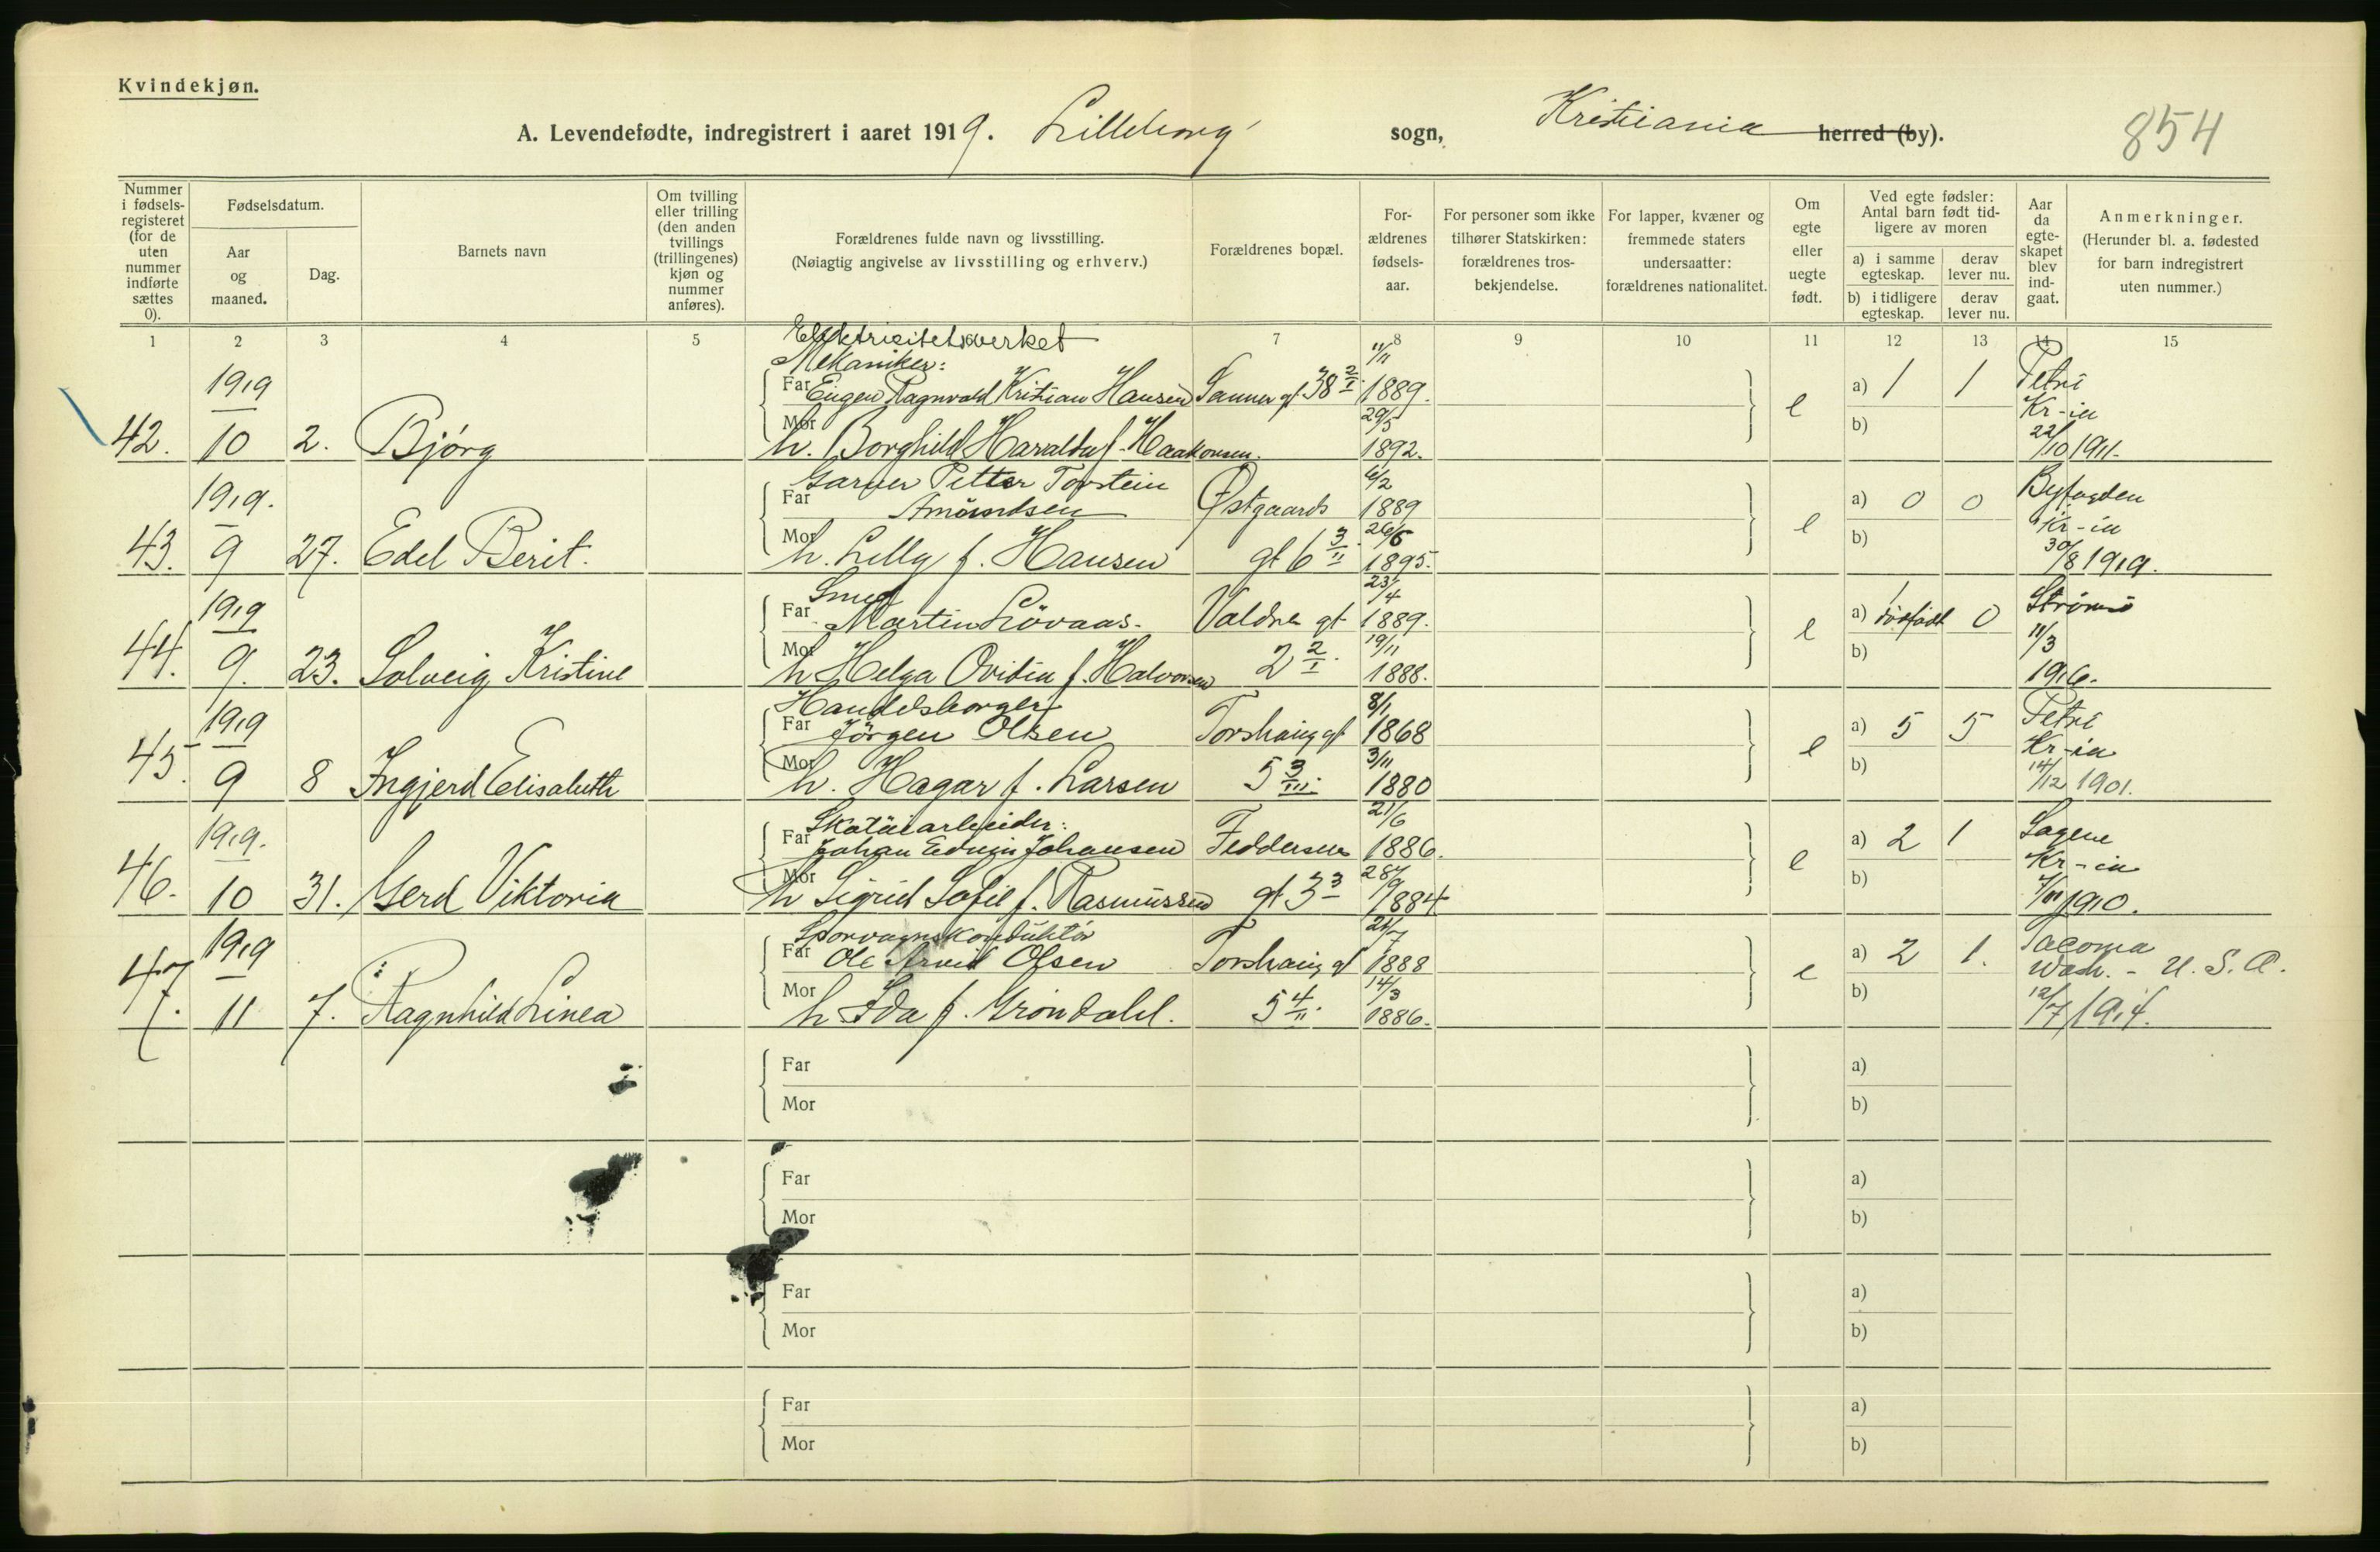 Kvindekjøn.
A. Levendefødte, indregistrert i aaret 1919. Lilleborg sogn, Kristiania herred (by). 854
Nummer i fødsels-registeret (for de uten nummer indførte sættes 0).
Fødselsdatum.
Aar og maaned.
Dag.
Barnets navn
Om tvilling eller trilling (den anden tvillings (trillingenes) kjøn og nummer anføres).
Forældrenes fulde navn og livsstilling.
(Nøiagtig angivelse av livsstilling og erhverv.)
Forældrenes bopæl.
For-ældrenes fødsels-aar.
For personer som ikke tilhører Statskirken: forældrenes tros-bekjendelse.
For lapper, kvæner og fremmede staters undersaatter: forældrenes nationalitet.
Om egte eller uegte født.
Ved egte fødsler: Antal barn født tid-ligere av moren
a) i samme egteskap. derav lever nu.
b) i tidligere egteskap. derav lever nu.
Aar da egte-skapet blev ind-gaat.
Anmerkninger.
(Herunder bl. a. fødested for barn indregistrert uten nummer.)
1 2 3 4 5 7 8 9 10 11 12 13 14 15
Elektricitetsverket
Mekaniker: 11/11
1919 Far Eugen Ragnvald Kristian Hansen Sanner gt 38 2/I 1889. e a) 1 1 Petri
Mor 29/5 b) Kr-ia
42. 10 2. Bjørg h. Borghild Haralda f. Haakonsen. 1892. 22/10 1911.
Garver Petter Torstein 6/2
1919. Far Amundsen Østgaards 1889 e a) 0 0 Byfogden
Mor 26/6 b) Kr-ia
43. 9 27. Edel Berit. h. Lilly f. Hansen gt 6 3/II 1895. 30/8 1919.
Smed 23/4 1
1919 Far Martin Lövaas. Valdres gt 1889. e a) dødfødt 0 Strømsö
Mor 19/11 b) 11/3
44. 9. 23. Solveig Kristine h Helga Ovidia f. Halvorsen 2 2/I. 1888. 1916.
Handelsborger 8/1
1919 Far Jörgen Olsen Torshaug gt 1868 e a) 5 5 Petri
Mor 3/11 b) Kr-ia
45. 9 8 Ingjerd Elisabeth h. Hagar f. Larsen 5 3/III. 1880 14/12 1901.
Skotøiarbeider: 21/6
1919. Far Johan Edvin Johansen Feddersens 1886. e a) 2 1 Sagene
Mor 28/9 b) Kr-ia
46. 10 31. Gerd Viktoria h Sigrid Sofie f. Rasmussen gt 3 3 1884 1910.
Sporvognskonduktör
1919 Far Ole Arvid Olsen Torshaug gt 1888 e a) 2 1. Tacoma
Mor 14/3 b) Wash. - U. S. A.
47. 11 7. Ragnhild Linea h Ida f. Gröndahl. 5 4/II. 1886. 12/7 1914.
Far a)
Mor b)
Far a)
Mor b)
Far a)
Mor b)
Far a)
Mor b)